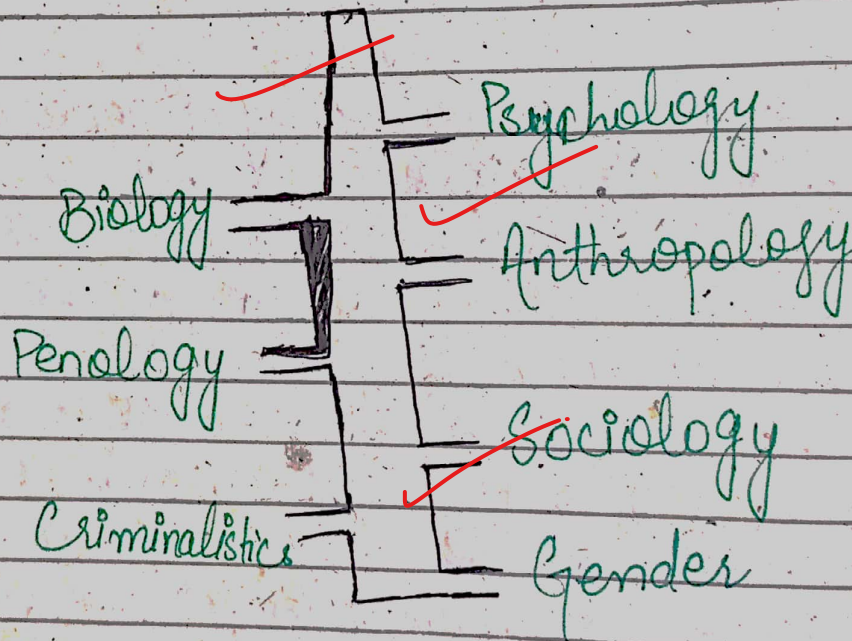 Psychology
Biology
Anthropology
Penology
Sociology
Criminalistics
Gender